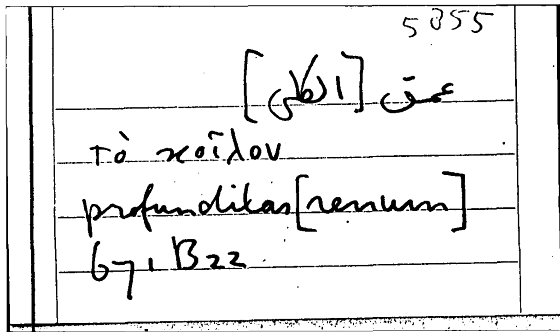 5855
عمق [الكلى]
τὸ κοῖλον
profunditas [renum]
671 B22